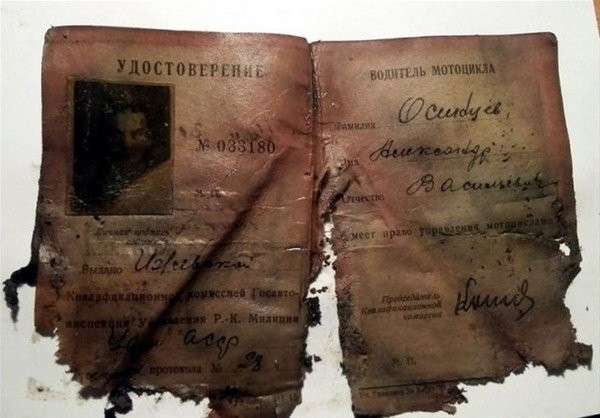 УДОСТОВЕРЕНИЕ
№ 033180
Личная подпись
Выдано Ижевской
Квалификационной комиссией Госавто-
инспекции Управления Р.-К. Милиции
Удм АССР
протокола № 28
ВОДИТЕЛЬ МОТОЦИКЛА
Фамилия
Имя Александр
Отчество Васильевич
имеет право управления мотоциклами
Председатель
Квалификационной
комиссии
М. П.